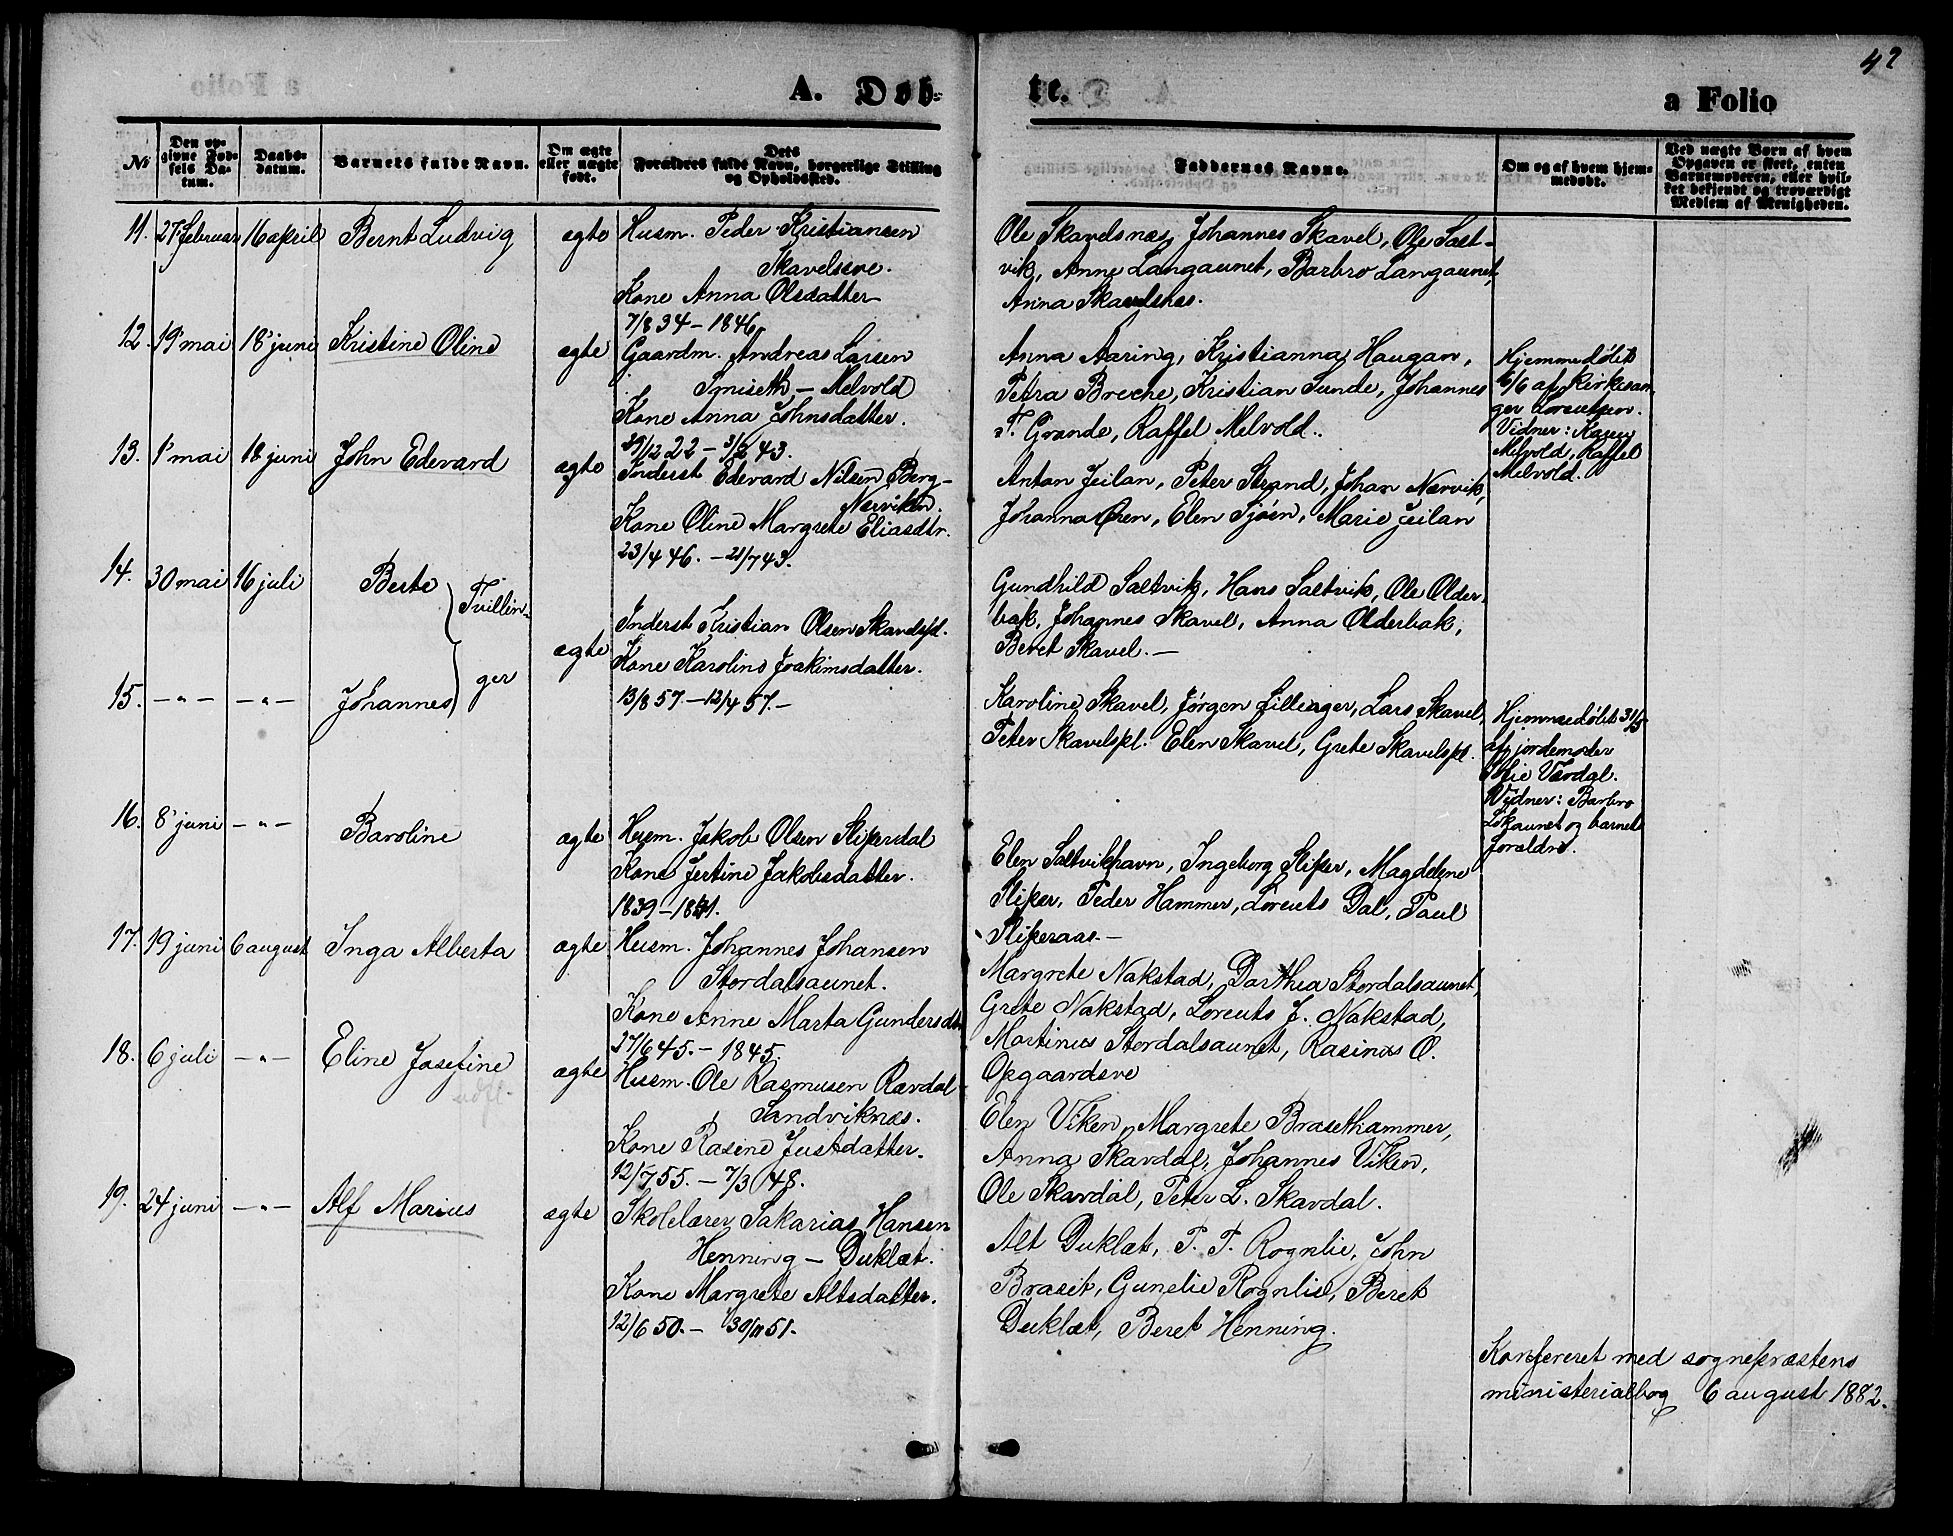 42
A. Døb-
te.
a Folio
No
Den op-
givne Fød-
sels Da-
tum.
Daabs-
datum.
Barnets fulde Navn.
Om ægte
eller uægte
født.
Dets
Forældres fulde Navn, borgerlige Stilling
og Opholdssted.
Faddernes Navne.
Om og af hvem hjem-
medøbt.
Ved uægte Børn af hvem
Opgaven er skeet, enten
Barnemoderen, eller hvil-
ket bekjendt og troværdigt
Medlem af Menigheden.
11. 27 februar 16 april Bernt Ludvig ægte
Husm. Peder Kristiansen
Skavelseve.
Kone Anna Olsdatter
7/8 34 – 1846.
Ole Skavdsnæs, Johannes Skavel, Ole Salt-
vik, Anne Langaunet, Barbro Langaunet,
Anna Skavlsnæs.
12. 19 mai 18 juni Kristine Oline ægte
Gaardm. Andreas Larsen
Smiseth – Melvold
Kone Anna Johnsdatter.
29/12 22 – 3/2 43.
Anna Aaring, Kristianna Haugan,
Petra Breche, Kristian Sunde, Johannes
T. Grande, Raffel Melvold.
Hjemmedøbt
6/6 af kirkesan-
ger Lorentsen.
Vidner: Karen
Melvold, Raffel
Melvold.
13. 1 mai 18 juni John Edevard ægte
Inderst Edevard Nilsen Berg-
Nærviken.
Kone Oline Margrete Eliasdtr.
23/4 46. – 21/7 43.
Anton Jeilan, Peter Strand, Johan Nærvik,
Johanna Øren, Elen Sjøen, Marie Jeilan
14. 30 mai 16 juli Berte
Tvillin-
ger
ægte
Inderst Kristian Olsen Skavelspl.
Kone Karoline Joakimsdatter.
13/8 57. – 12/4 57. –
Gundhild Saltvik, Hans Saltvik, Ole Older-
bak, Johannes Skavel, Anna Olderbak,
Beret Skavel. –
15. – " – – " – Johannes
Karoline Skavel, Jørgen Lilleager, Lars Skavel,
Peter Skavelspl. Elen Skavel, Grete Skavelspl.
Hjemmedøbt 31/5
af jordemoder
Værdal.
Vidner: Barbro
Lokaunet og barnets
forældre.
16. 8 juni – " – Baroline ægte
Husm. Jakob Olsen Slipersdal
Kone Jertine Jakobsdatter.
1839 – 1841.
Elen Saltvikhavn, Ingeborg Sliper, Magdelene
Sliper, Peder Hammer, Lorents Dal, Paul
Sliperaas. –
17. 19 juni 6 august Inga Alberta ægte
Husm. Johannes Johansen
Stordalsaunet.
Kone Anne Marta Gundersdt.
27/6 45. – 1845.
Margrete Nakstad, Dorthea Stordalsaunet,
Grete Nakstad, Lorents J. Nakstad,
Martinus Stordalsaunet, Rasinus O.
Opgaardseve
18. 6 juli – " – Eline Josefine ægte
udfl.
Husm. Ole Rasmusen Rævdal
Sandviknæs.
Kone Rasine Justdatter.
12/7 55. – 7/3 48.
Elen Viken, Margrete Brasethammer,
Anna Skavdal, Johannes Viken,
Ole Skavdal, Peter L. Skavdal.
19. 24 juni – " – Alf Marius ægte
Skolelærer Sakarias Hansen
Henning – Duklæt.
Kone Margrete Altsdatter.
12/6 50. – 30/11 51.
Alt Duklæt, P. T. Rognlie, John
Braset, Gunelie Rognlie, Beret
Duklæt, Beret Henning.
Konfereret med sognepræstens
ministerialbog 6 august 1882.